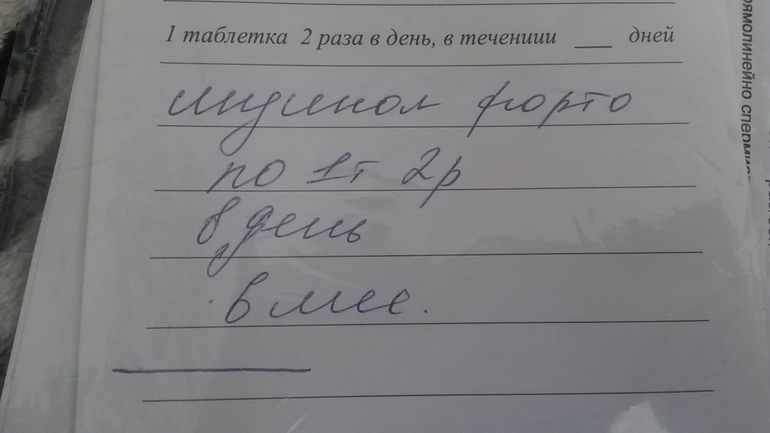 1 таблетка 2 раза в день, в течениии ___ дней
индинол форто
по 1т 2р
в день
6 мес.
рямолинейно